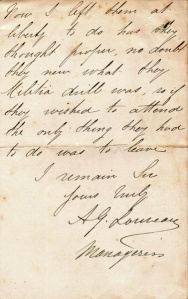 Now I left them at
liberty to do has they
thought proper, no doubt
they new what they
Militia drill was, so if
they wished to attend
the only thing they had
to do was to leave
I remain Sir
Yours truly
A. G.